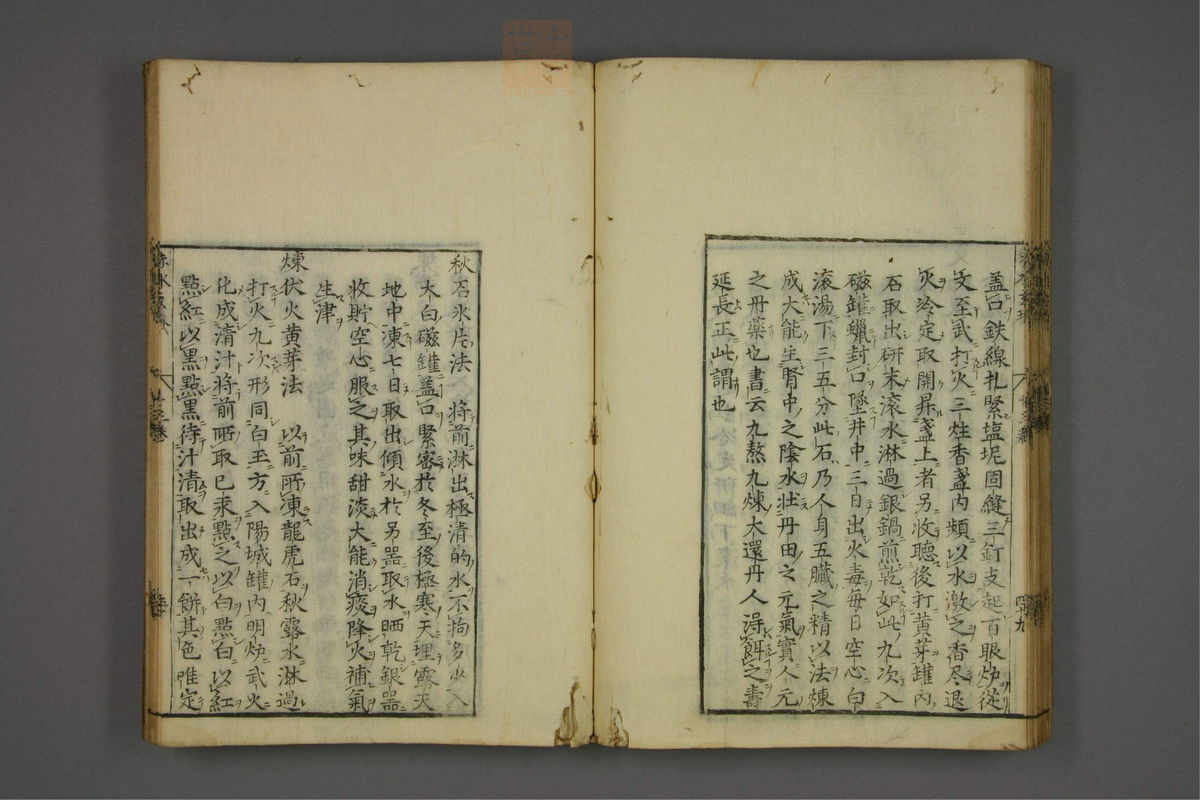 盖口鉄線扎緊塩坭固縫三釘支起百眼炉從
文至武打火三炷香盞内頻以水激之香尽退
火冷定取開昇盞上者另收聴後打黄芽罐内
石取出研末滚水淋過銀鍋煎乾如此九次入
磁罐蠟封口墜井中三日出火毒毎日空心白
滚湯下三五分此石乃人身五臓之精以法煉
成大能生腎中之陰水壮丹田之元氣實人元
之丹藥也書云九熬九煉大還丹人淂餌之壽
延長正此謂也
秋石氷片法 将前淋出極清的水不拘多少入
大白磁罐盖口緊密於冬至後極寒天埋露天
地中凍七日取出傾水於另噐取水晒乾銀噐
收貯空心服之其味甜淡大能消痰降火補氣
生津
煉伏火黄芽法 以前所凍龍虎石秋露水淋過
打火九次形同白玉方入陽城罐内明炉武火
化成清汁将前晒取巳汞點之以白點白以紅
點紅以黒點黒待汁清取出成一餅其色唯定
赤水玄珠
四十九